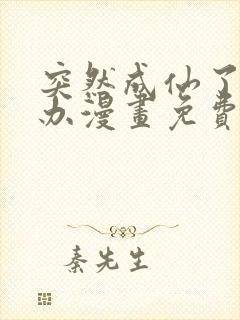 突然成仙了
办漫畫免費
秦先生